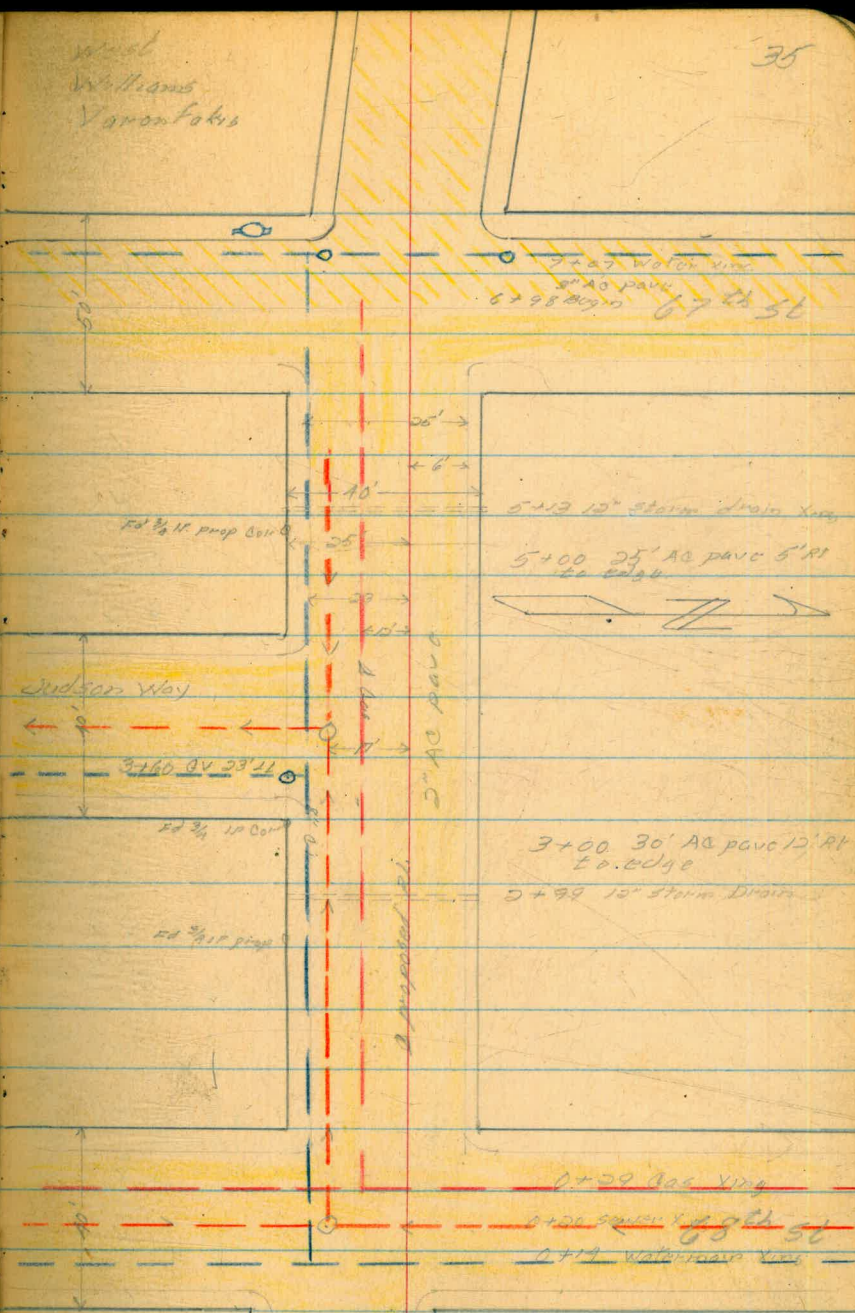 35
West
Williams
50'
7+07 Water Xing
2" AC pave
6+98 Begin
67th St
26'
6'
40'
5+13 12" Storm drain Xing
Fd 3/4 IP prop Cor
25'
5+00 25' AC pave 5' Rt
to edge
23
2" AC pave
Judson Way
40'
17'
3+60 GV 23' Lt
Fd 3/4 IP Cor
3+00 30' AC pave 12' Rt
to edge
2+99 12" Storm Drain
Fd 3/4 IP prop
proposed
0+29 Gas Xing
40'
0+20 Sewer X
68th St
0+14 Watermain Xing